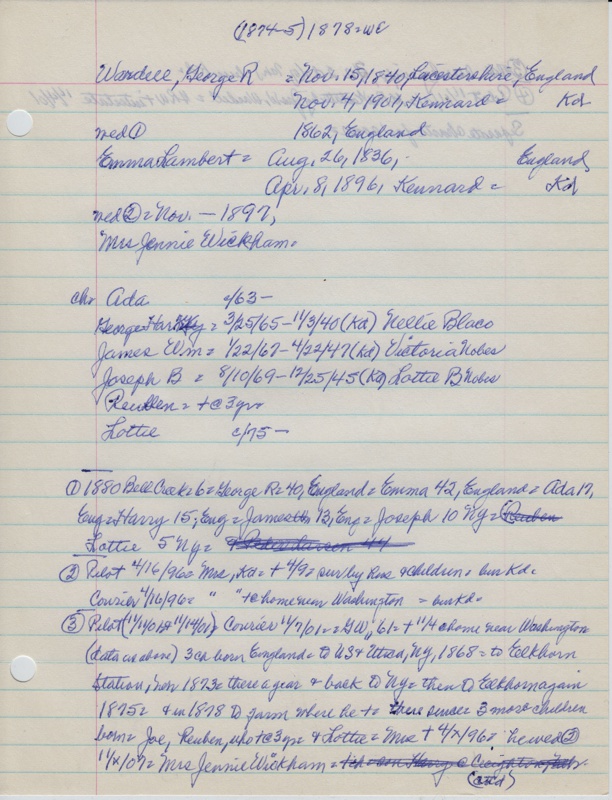 (1874-5) 1878=WC
Wardell, George R = Nov. 15, 1840, Leicestershire, England
Nov. 4, 1901, Kennard = Kd
wed① 1862, England
Emma Lambert = Aug. 26, 1836, England,
Apr. 8, 1896, Kennard = Kd
wed② = Nov. — 1897,
Mrs Jennie Wickham =
chr Ada c/63 —
George Harry = 3/25/65 - 11/3/40 (Kd) Nellie Blaco
James Wm = 1/22/67 - 4/22/47 (Kd) Victoria Nobes
Joseph B = 8/10/69 - 12/25/45 (Kd) Lottie B Nobes
Reuben = + @ 3 yrs
Lottie c/75 —
① 1880 Bell Creek = 6 = George R = 40, England = Emma 42, England = Ada 17,
Eng = Harry 15, Eng = James 13, Eng = Joseph 10 Ny = Reuben
Lottie 5 Ny =
② Pilot 4/16/96 = Mrs, Kd = + 4/9 = sur by hus & children = bur Kd =
Courier 4/16/96 = " " + @ home near Washington = bur Kd =
③ Pilot (11/14/01) Courier 11/7/01 = GW, 61 = + 11/4 @ home near Washington
(data as above) 3 ch born England = to US & Utica, Ny, 1868 = to Elkhorn
Station, Nov 1873 = there a year & back to Ny = then to Elkhorn again
1875 = & in 1878 to farm where he + = there since = 3 more children
born = Joe, Reuben, who + @ 3 yrs & Lottie = Mrs + 4/x/96 = he wed ②
11/x/07 = Mrs Jennie Wickham =
(cdd)